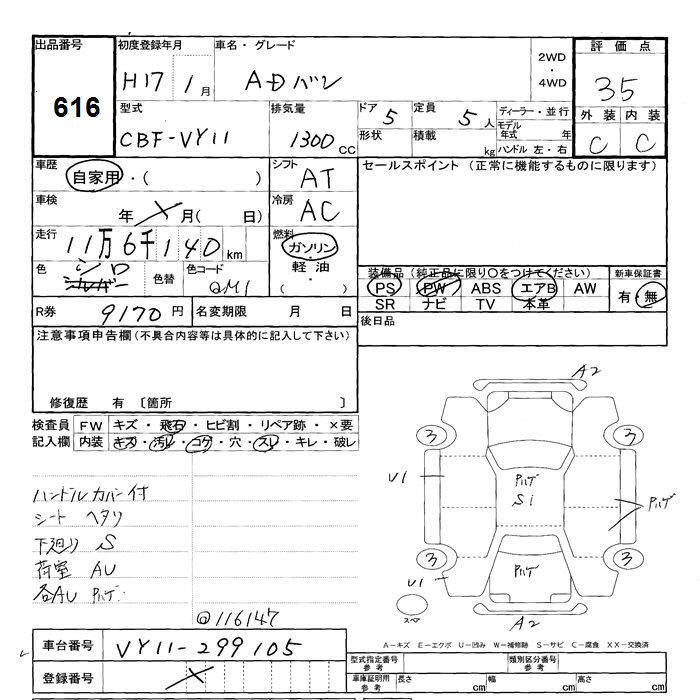 出品番号
616
初度登録年月
H17 1月
車名・グレード
ADバン
2WD
・
4WD
評価点
3.5
外装 内装
C C
型式
CBF-VY11
排気量
1300 CC
ドア 5
形状
定員 5 人
積載 kg
ディーラー・並行
モデル年式 年
ハンドル 左・右
車歴
自家用・( )
シフト
AT
セールスポイント (正常に機能するものに限ります)
車検
年 月( 日)
冷房
AC
走行
11万6千140 km
燃料
ガソリン
軽油
( )
色
シロ
色替
色コード
QM1
装備品(純正品に限り○をつけてください)
PS PW ABS エアB AW
SR ナビ TV 本革
新車保証書
有・無
R券 9170 円
名変期限 月 日
後日品
注意事項申告欄(不具合内容等は具体的に記入して下さい)
修復歴 有 〔箇所 〕
検査員 FW キズ・飛石・ヒビ割・リペア跡・×要
記入欄 内装 キズ・汚レ・コゲ・穴・スレ・キレ・破レ
ハンドルカバー付
シート ヘタリ
下廻り S
荷室 AU
各AU ハゲ
@116147
A2
3
3
U1
ハゲ
S1
ハゲ
3
ハゲ
3
U1
スペア
A2
車台番号 VY11-299105
登録番号
A-キズ E-エクボ U-凹み W-補修跡 S-サビ C-腐食 XX-交換済
型式指定番号 参考
類別区分番号 参考
車庫証明用 参考
長さ cm
幅 cm
高さ cm